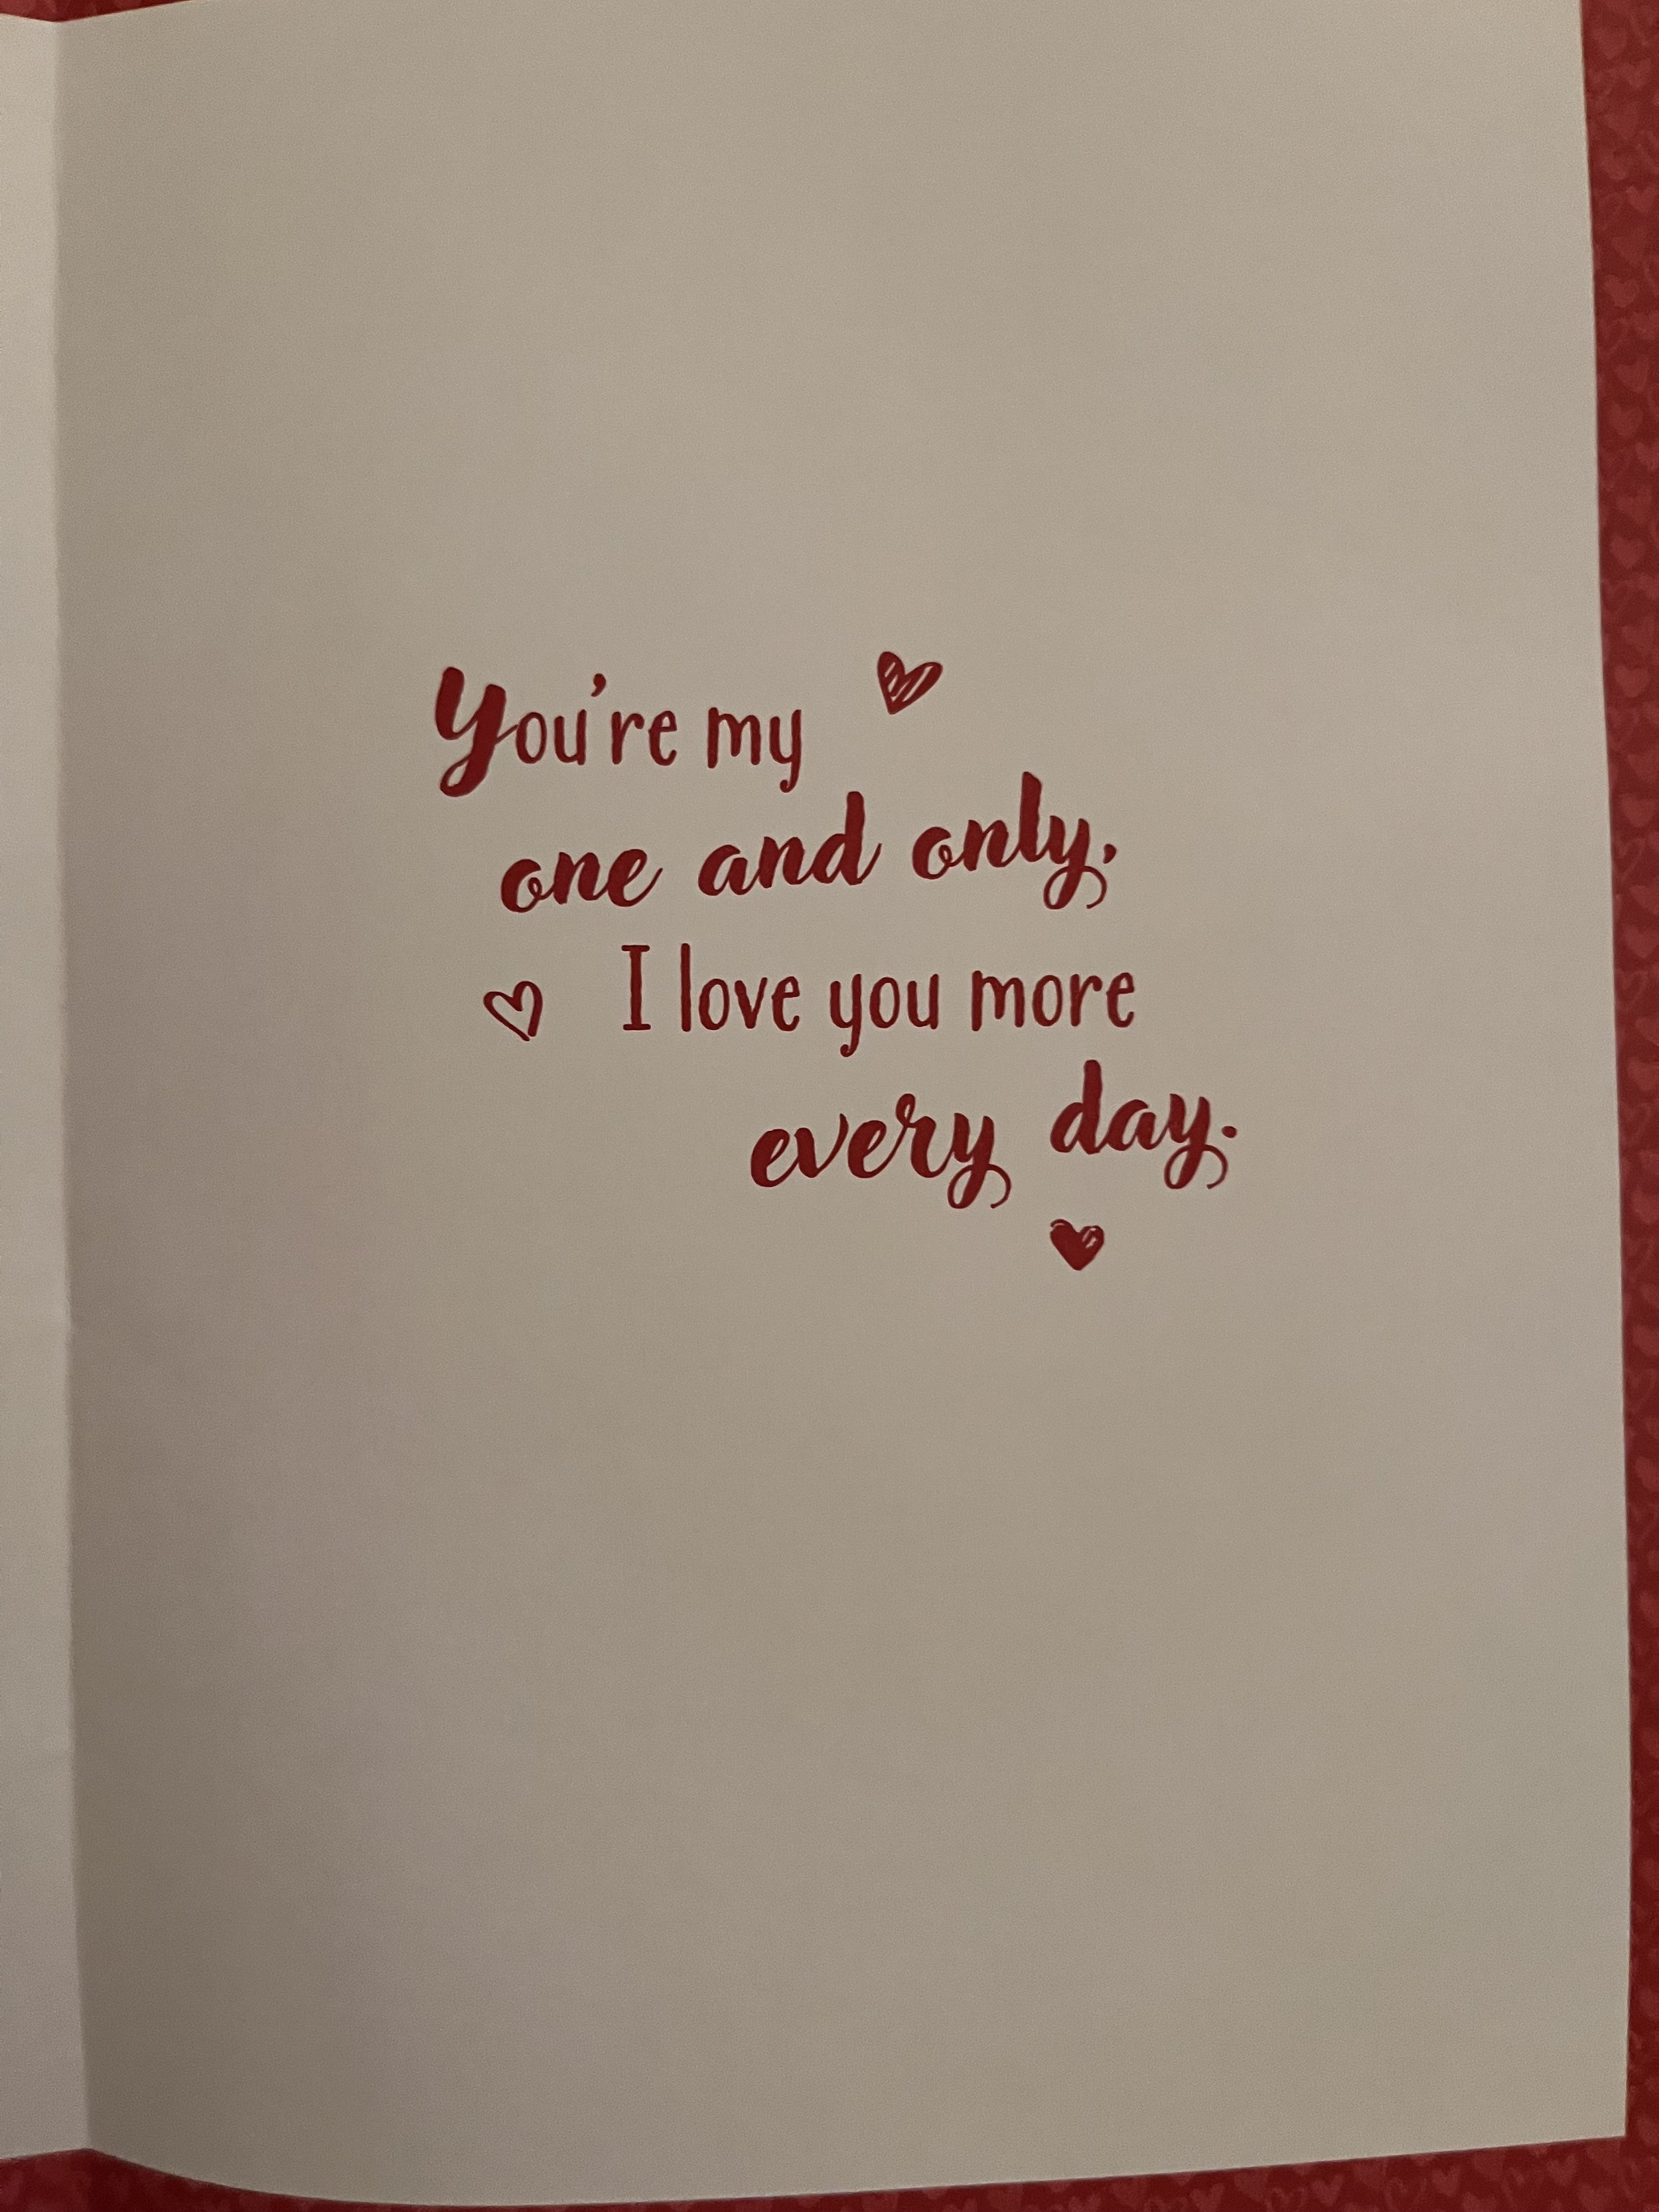 You're my
one and only,
I love you more
every day.